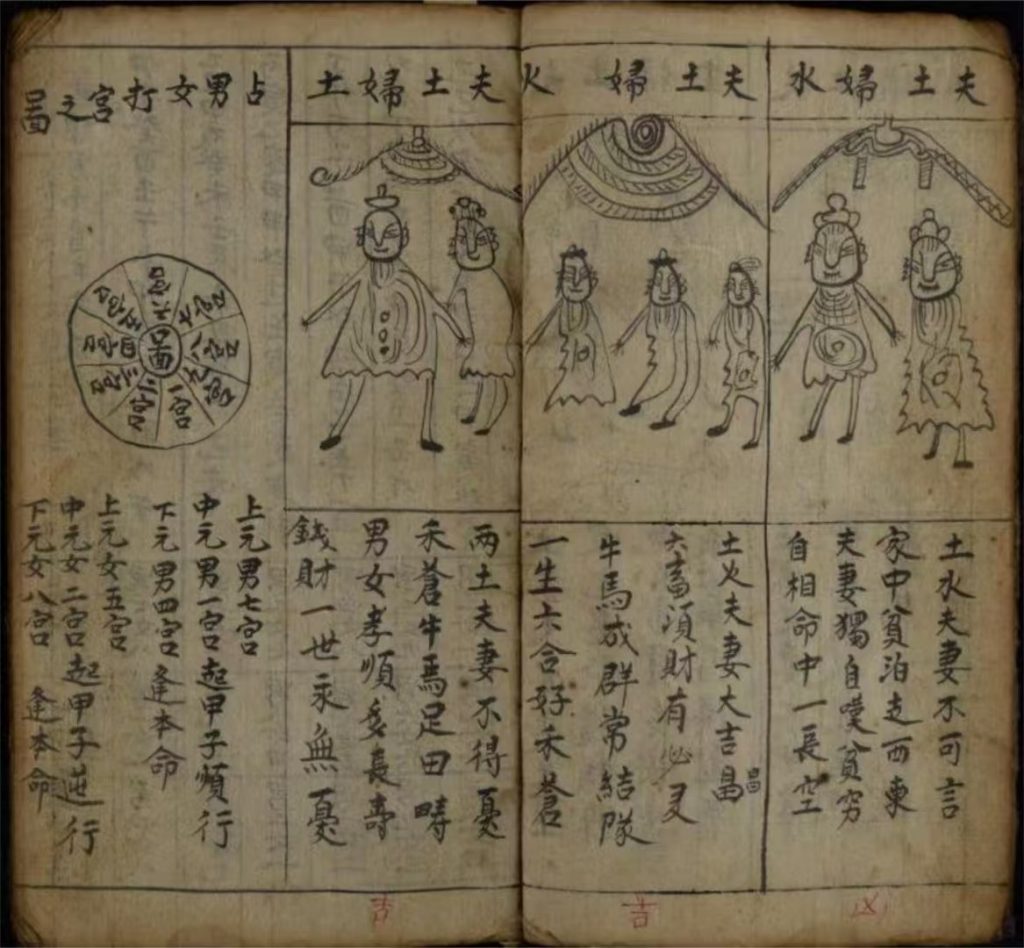 夫土婦水
土水夫妻不可言
家中貧泊走西東
夫妻獨自嘆貧穷
自相命中一長空
凶
夫土婦火
土火夫妻大吉昌昌
六畜須財有必又
牛馬成群常結隊
一生六合好禾蒼
吉
夫土婦土
两土夫妻不得憂
禾蒼牛馬足田疇
男女孝順多長壽
錢財一世永無憂
吉
占男女打宮之圖
圖
一宮
二宮
三宮
四宮
五宮
六宮
七宮
八宮
九宮
上元男七宮
中元男一宮起甲子順行
下元男四宮逢本命
上元女五宮
中元女二宮起甲子逆行
下元女八宮逢本命